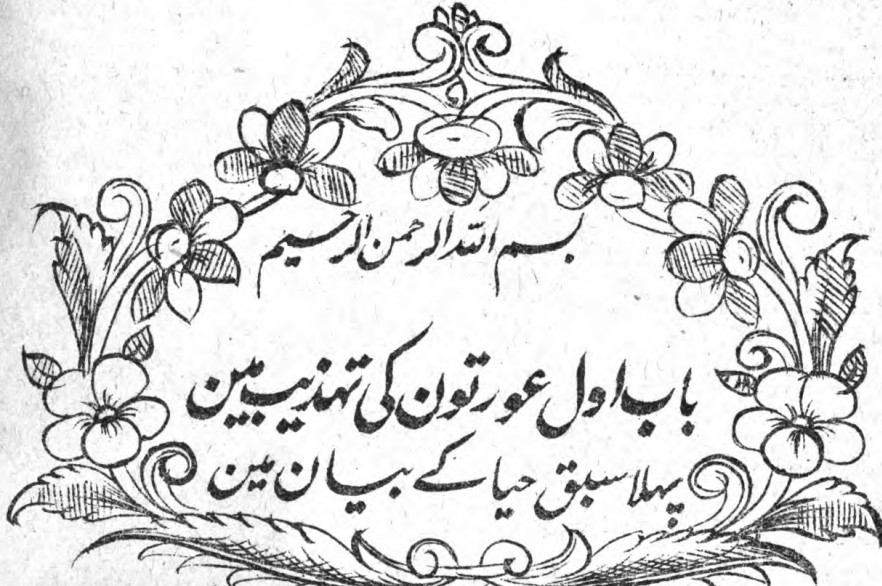 بسم اللہ الرحمن الرحیم
باب اول عورتون کی تہذیب مین
پہلا سبق حیا کے بیان مین